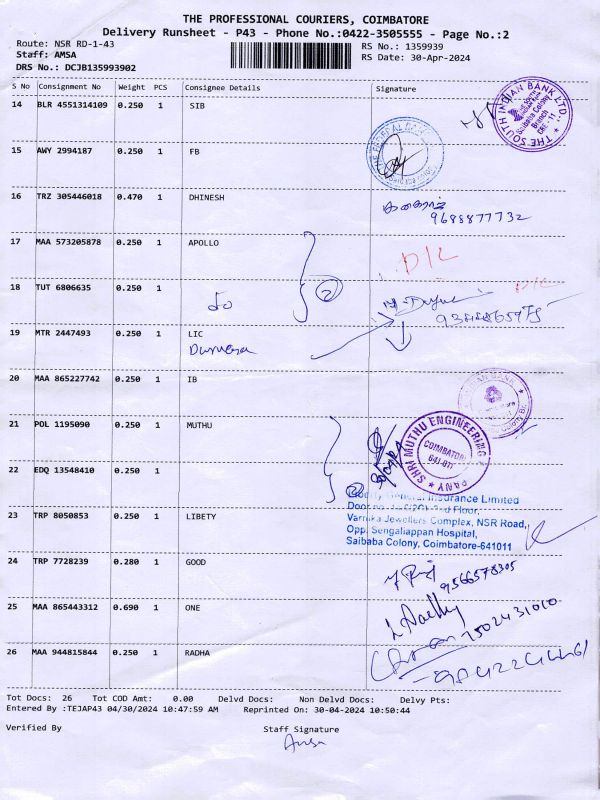 THE PROFESSIONAL COURIERS, COIMBATORE
Delivery Runsheet - P43 - Phone No.:0422-3505555 - Page No.:2
Route: NSR RD-1-43
RS No.: 1359939
Staff: AMSA
RS Date: 30-Apr-2024
DRS No.: DCJB135993902
S No Consignment No Weight PCS Consignee Details Signature
14 BLR 4551314109 0.250 1 SIB
THE SOUTH INDIAN BANK LTD.
Saibaba Colony
Branch
CBE - 11
15 AWY 2994187 0.250 1 FB
16 TRZ 305446018 0.470 1 DHINESH
9688877732
17 MAA 573205878 0.250 1 APOLLO
D/L
18 TUT 6806635 0.250 1
2
D/L
19 MTR 2447493 0.250 1 LIC
20 MAA 865227742 0.250 1 IB
21 POL 1195090 0.250 1 MUTHU
SHRI MUTHU ENGINEERING
COIMBATORE
641-011
22 EDQ 13548410 0.250 1
2
General Insurance Limited
23 TRP 8050853 0.250 1 LIBETY
Varnika Jewellers Complex, NSR Road,
Opp. Sengaliappan Hospital,
Saibaba Colony, Coimbatore-641011
24 TRP 7728239 0.280 1 GOOD
9566578305
25 MAA 865443312 0.690 1 ONE
7502431010
26 MAA 944815844 0.250 1 RADHA
Tot Docs: 26 Tot COD Amt: 0.00 Delvd Docs: Non Delvd Docs: Delvy Pts:
Entered By :TEJAP43 04/30/2024 10:47:59 AM Reprinted On: 30-04-2024 10:50:44
Verified By Staff Signature
Amsa